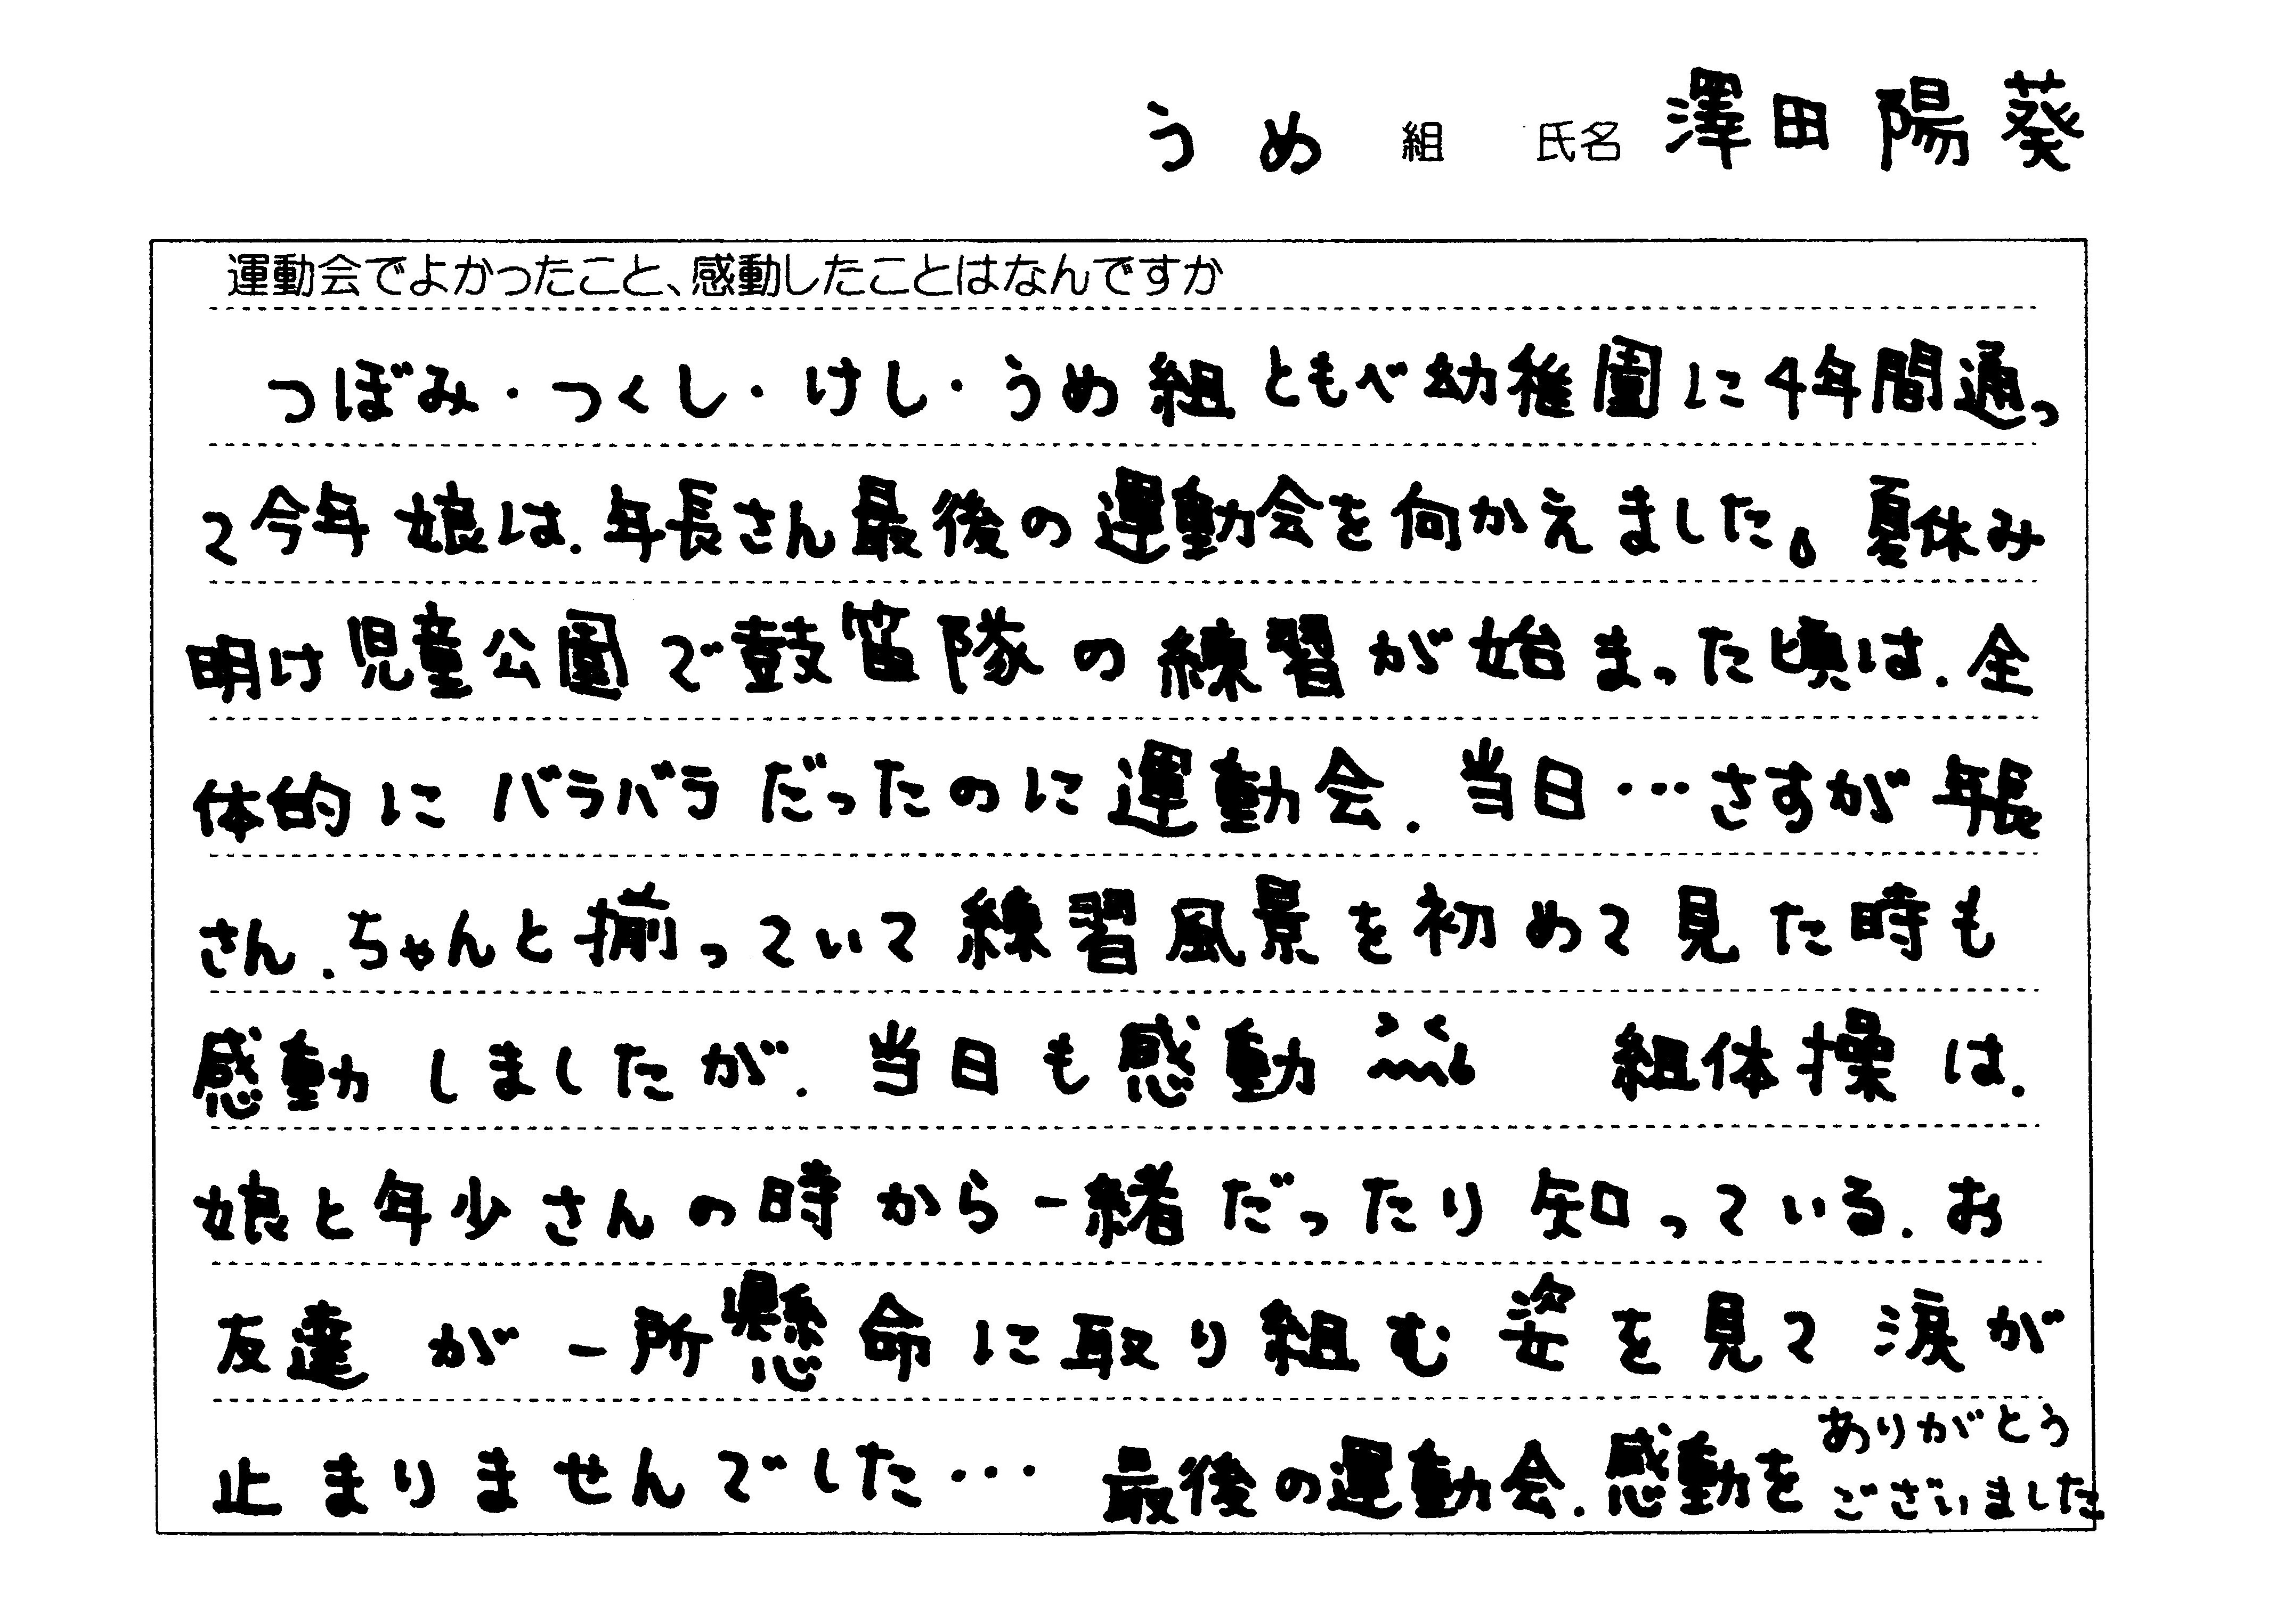 うめ 組 氏名 澤田 陽葵
運動会でよかったこと、感動したことはなんですか
つぼみ・つくし・けし・うめ組ともべ幼稚園に4年間通っ
て今年娘は、年長さん最後の運動会を向かえました。夏休み
明け児童公園で鼓笛隊の練習が始まった頃は、全
体的にバラバラだったのに運動会、当日…さすが年長
さん、ちゃんと揃っていて練習風景を初めて見た時も
感動しましたが、当日も感動 組体操は、
娘と年少さんの時から一緒だったり知っている、お
友達が一所懸命に取り組む姿を見て涙が
止まりませんでした… 最後の運動会、感動を ありがとう
ございました